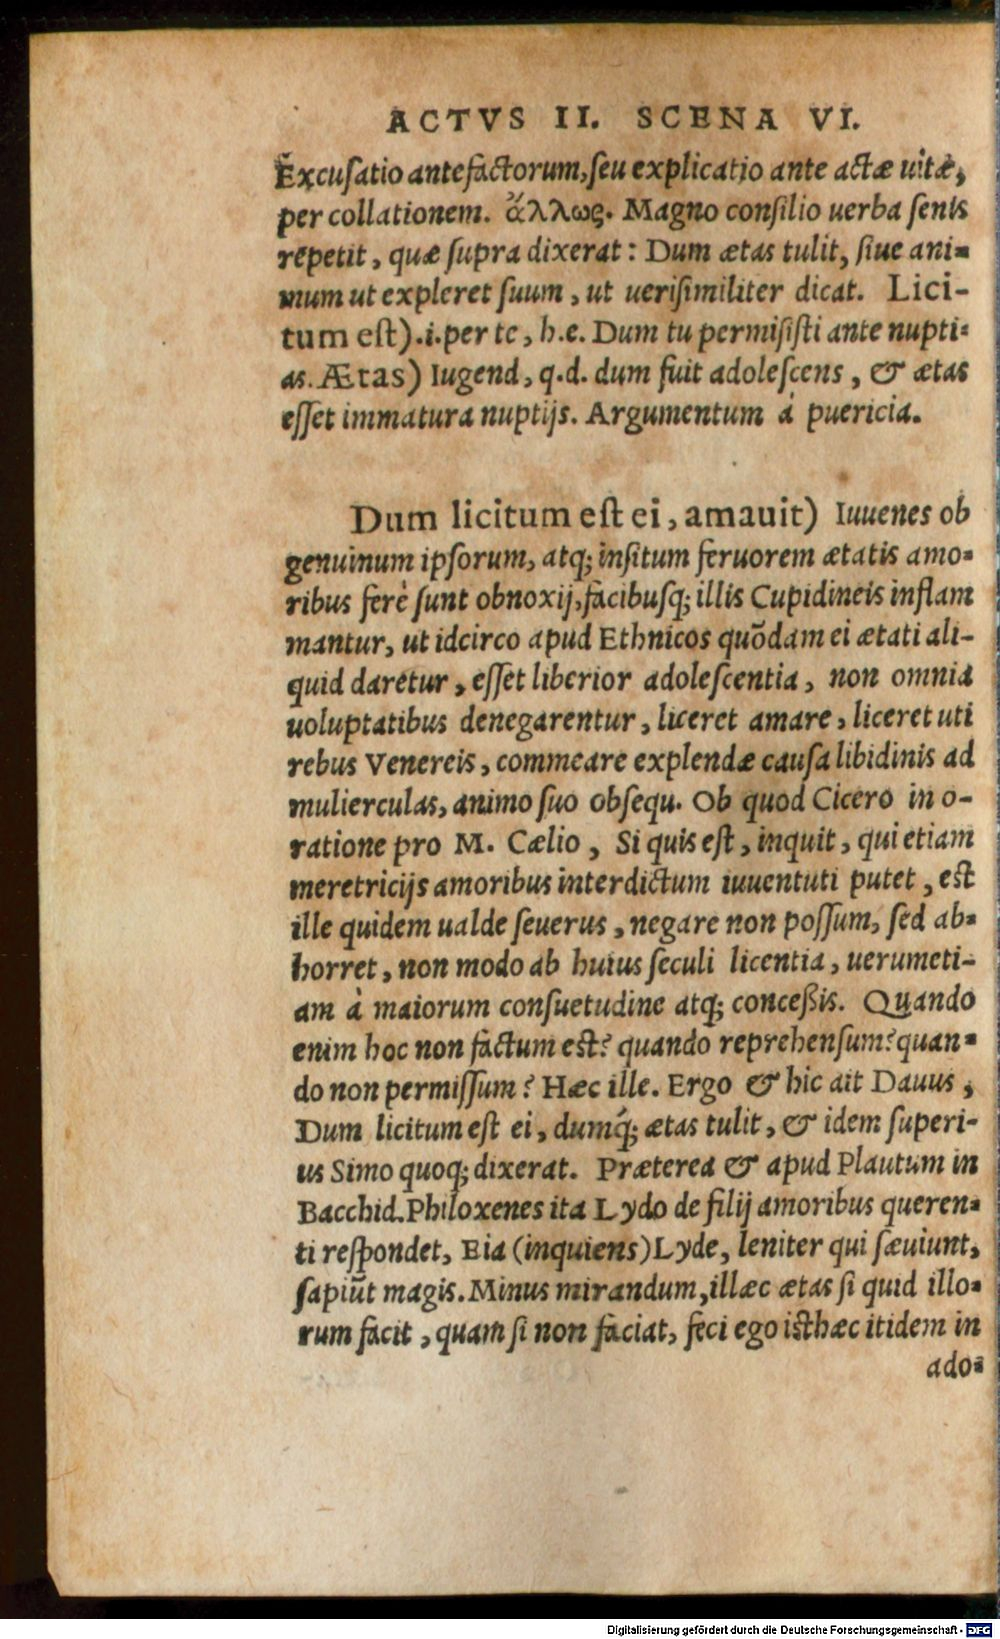 ACTVS II. SCENA VI.
Excusatio antefactorum, seu explicatio ante actæ uitæ,
per collationem. ἄλλως. Magno consilio uerba senis
repetit, quæ supra dixerat: Dum ætas tulit, siue ani-
mum ut expleret suum, ut uerisimiliter dicat. Lici-
tum est).i.per te, h.e. Dum tu permisisti ante nupti-
as. Ætas) Iugend, q.d. dum fuit adolescens, & ætas
esset immatura nuptijs. Argumentum à puericia.
Dum licitum est ei, amauit) Iuuenes ob
genuinum ipsorum, atq; insitum feruorem ætatis amo-
ribus ferè sunt obnoxij, facibusq; illis Cupidineis inflam
mantur, ut idcirco apud Ethnicos quõdam ei ætati ali-
quid daretur, esset liberior adolescentia, non omnia
uoluptatibus denegarentur, liceret amare, liceret uti
rebus Venereis, commeare explendæ causa libidinis ad
mulierculas, animo suo obsequ. Ob quod Cicero in o-
ratione pro M. Cælio, Si quis est, inquit, qui etiam
meretricijs amoribus interdictum iuuentuti putet, est
ille quidem ualde seuerus, negare non possum, sed ab-
horret, non modo ab huius seculi licentia, uerumeti-
am à maiorum consuetudine atq; conceßis. Quando
enim hoc non factum est? quando reprehensum? quan-
do non permissum? Hæc ille. Ergo & hic ait Dauus,
Dum licitum est ei, dumq́; ætas tulit, & idem superi-
us Simo quoq; dixerat. Præterea & apud Plautum in
Bacchid. Philoxenes ita Lydo de filij amoribus queren-
ti respondet, Eia (inquiens) Lyde, leniter qui sæuiunt,
sapiũt magis. Minus mirandum, illæc ætas si quid illo-
rum facit, quam si non faciat, feci ego isthæc itidem in
ado-
Digitalisierung gefördert durch die Deutsche Forschungsgemeinschaft - DFG